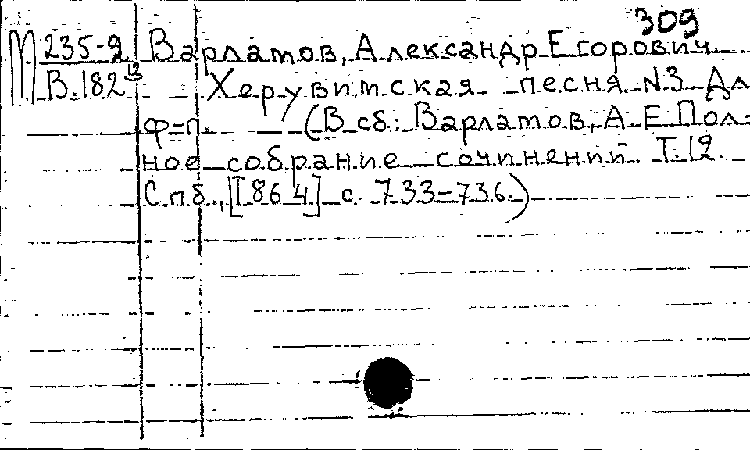 309
М 235-9 Варламов, Александр Егорович
В.182 Херувимская песня N3 Дл
ф-п. (В сб: Варламов, А Е Пол-
ное собрание сочинений. Т.12.
С.п.б., [1864] с. 733-736.)